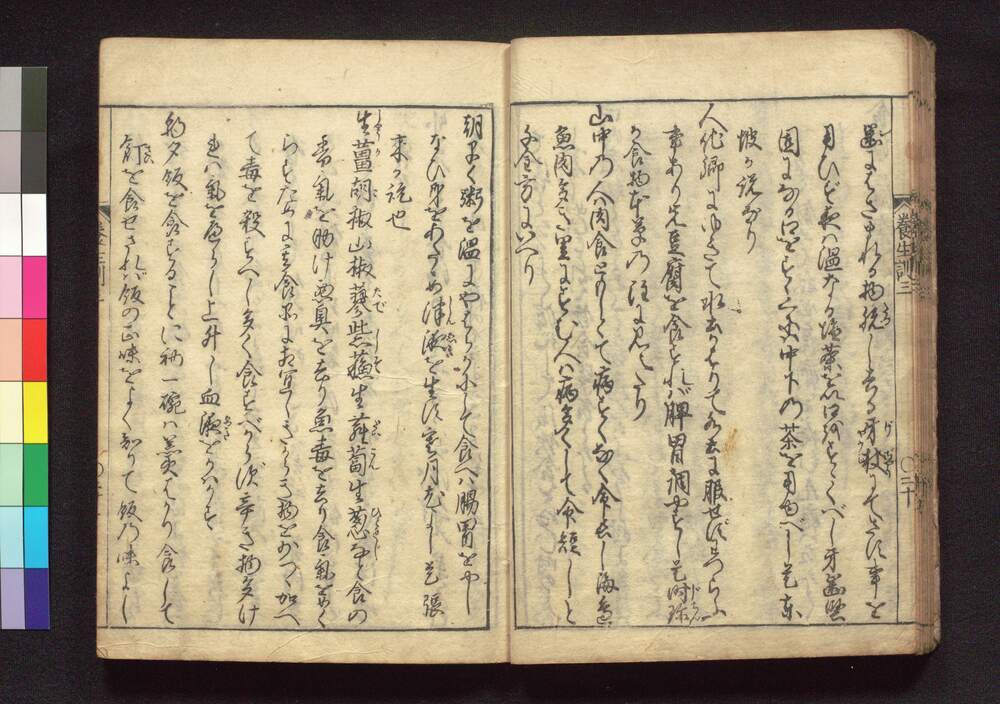 養生訓三
〇三十
齒にはさまれる物脱し去る牙杖にてさす事を
用ひず夜は温なる塩茶を以口をすゝぐべし牙齒堅
固になる口をすゝぐには中下の茶を用ゆべし是東
坡が説なり
人他郷にゆきて水土かはりて水土に服せずわづらふ
事あり先豆腐を食すれば脾胃調やすし是時珎
が食物本草の注に見えたり
山中の人肉食ともしくて病すくなく命長し海辺
魚肉多き里にすむ人は病多くして命短しと
千金方にいへり
朝早く粥を温にやはらかにして食へば腸胃をやし
なひ身をあたゝめ津液を生ず寒月尤よし是張
来が説也
生薑胡椒山椒蓼紫蘇生蘿蔔生葱など食の
香氣を助け悪臭を去り魚毒を去り食氣をめぐ
らすために其食品に相宜しきからき物を少づゝ加へ
て毒を殺すべし多く食すべからず辛き物多け
れば氣をへらし上升し血液をかはかす
朝夕飯を食するごとに初一碗は羹ばかり食して
飣を食せざれば飯の正味をよく知りて飯の味よし